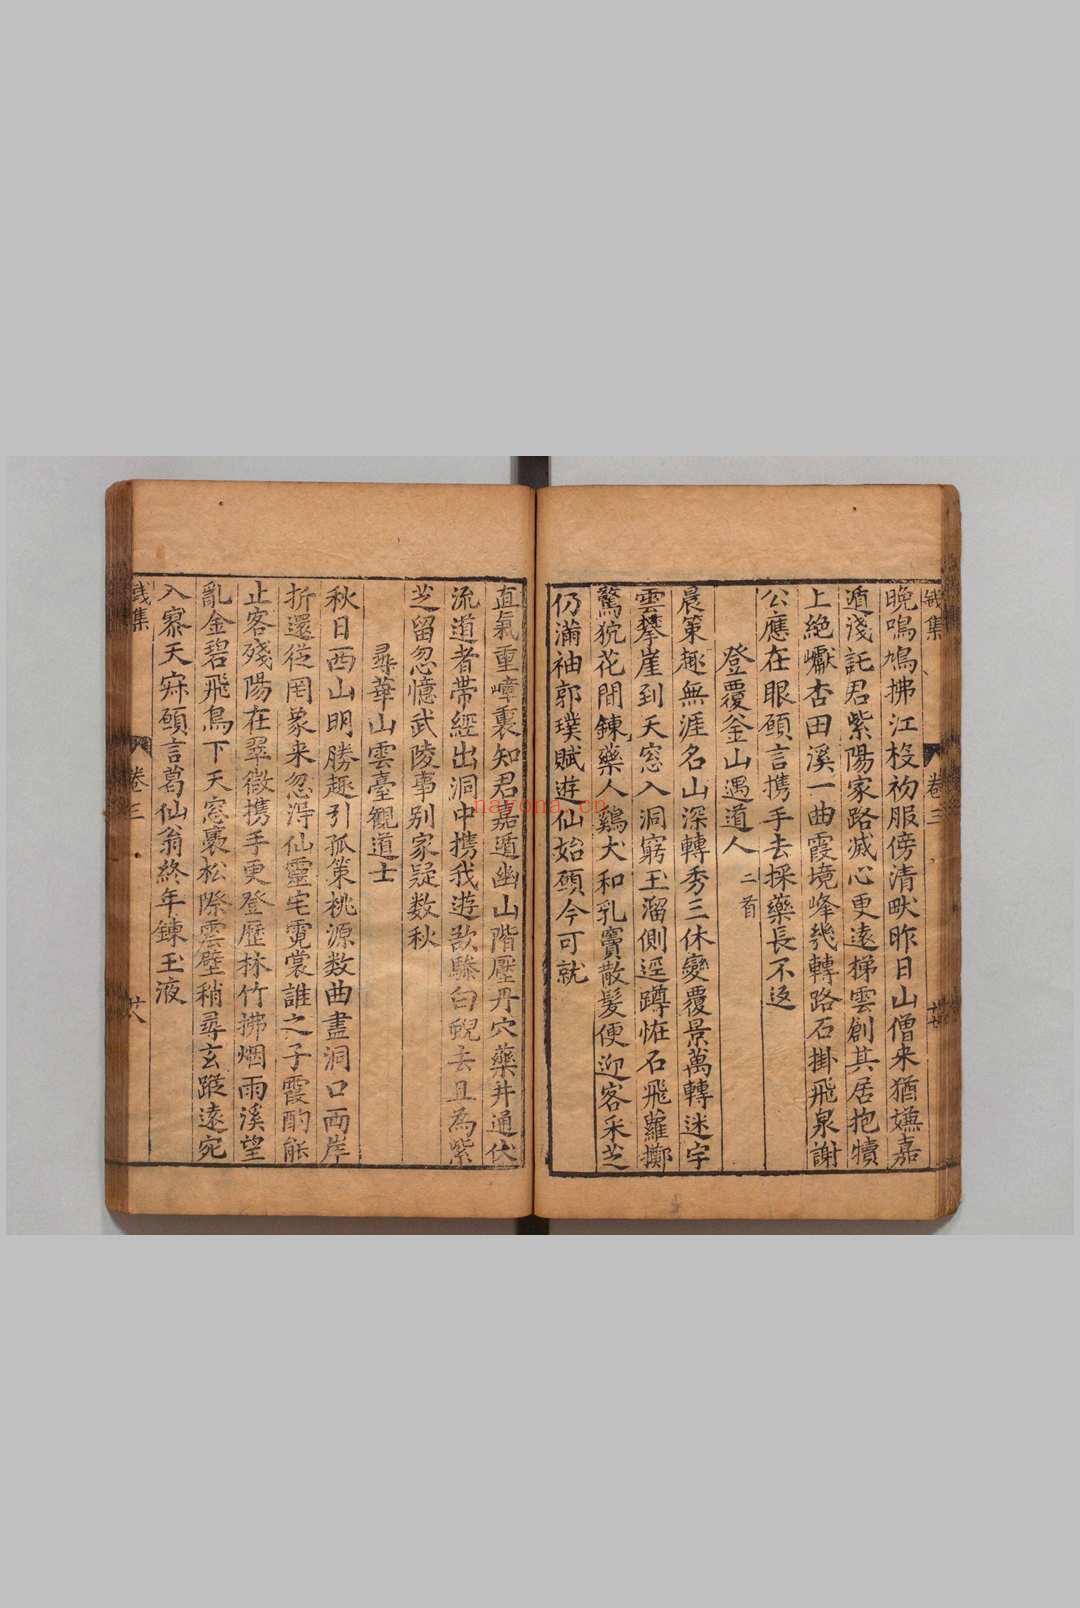 晚鳴鳩拂江杸初服傍清畎昨日山僧来猶嫌嘉
遁淺託君紫陽家路滅心更遠梯雲創其居抱犢
上絕巘杏田溪一曲霞境峰幾轉路石掛飛泉謝
公應在眼願言攜手去採藥長不返
登覆釜山遇道人 二首
晨策趣無涯名山深轉秀三休變覆景萬轉迷宇
雲攀崖到天窓入洞窮玉溜側逕蹲恠石飛蘿擲
驚狖花間鍊藥人鷄犬和乳竇散髮便迎客采芝
仍滿袖郭璞賦遊仙始願今可就
直氣重嶂裏知君嘉遁幽山階壓丹穴藥井通伏
流道者帶經出洞中攜我遊欲驂白蜺去且為紫
芝留忽憶武陵事别家疑数秋
尋華山雲臺觀道士
秋日西山明勝趣引孤策桃源数曲盡洞口两岸
折還從罔象来忽淂仙靈宅霓裳誰之子霞酌能
止客殘陽在翠微攜手更登歷林竹拂烟雨溪望
亂金碧飛鳥下天窓裊松際雲壁稍尋玄蹤遠宛
入寥天寂願言葛仙翁終年鍊玉液
卷三
廿八
nayona.cn